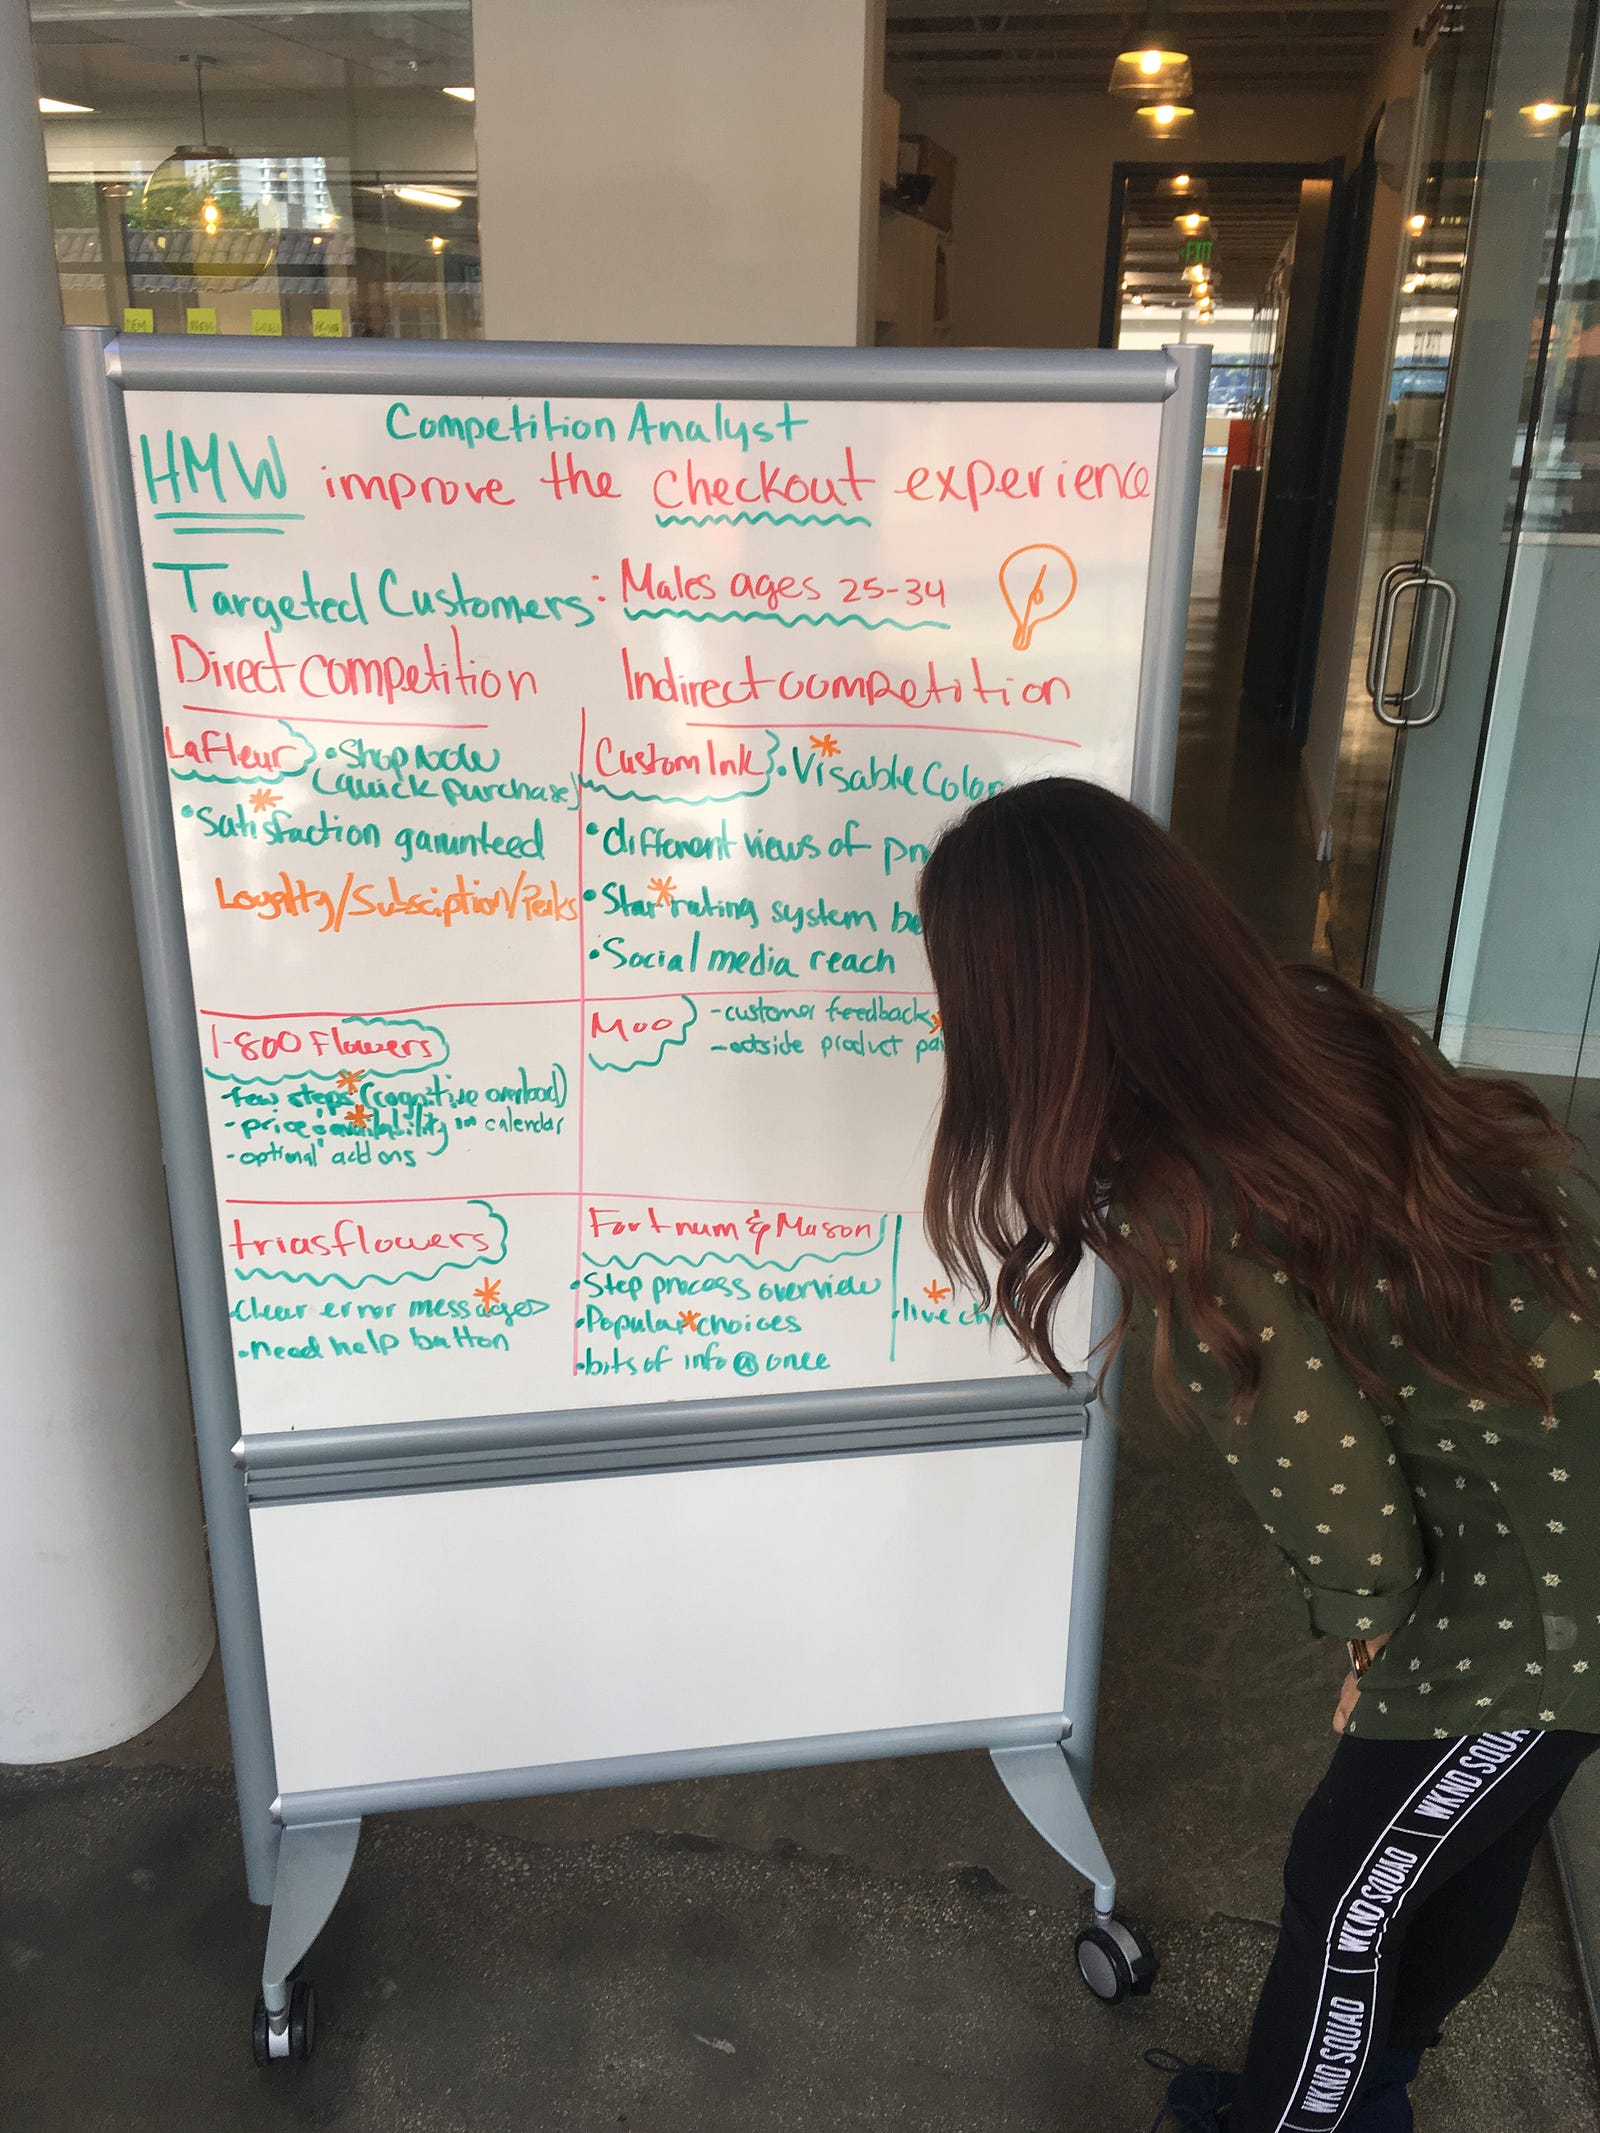 EXIT
NEEDS
GOALS
Competition Analyst
HMW improve the checkout experience
Targeted Customers: Males ages 25-34
Direct competition
Indirect competition
LaFleur
• Shop now
(quick purchase)
• Satisfaction garunteed
Loyalty/Subsciption/Perks
Custom Ink
• Visable Color
• different views of
• Star rating system
• Social media reach
1-800 Flowers
- few steps (cognitive overload)
- price & availability in calendar
- optional add ons
Moo
- customer feedback
- outside product
triasflowers
• Clear error messages
• need help button
Fortnum & Mason
• Step process overview
• Popular choices
• bits of info @ once
• live
WKND SQUAD
WKND SQUAD
WKND SQUAD